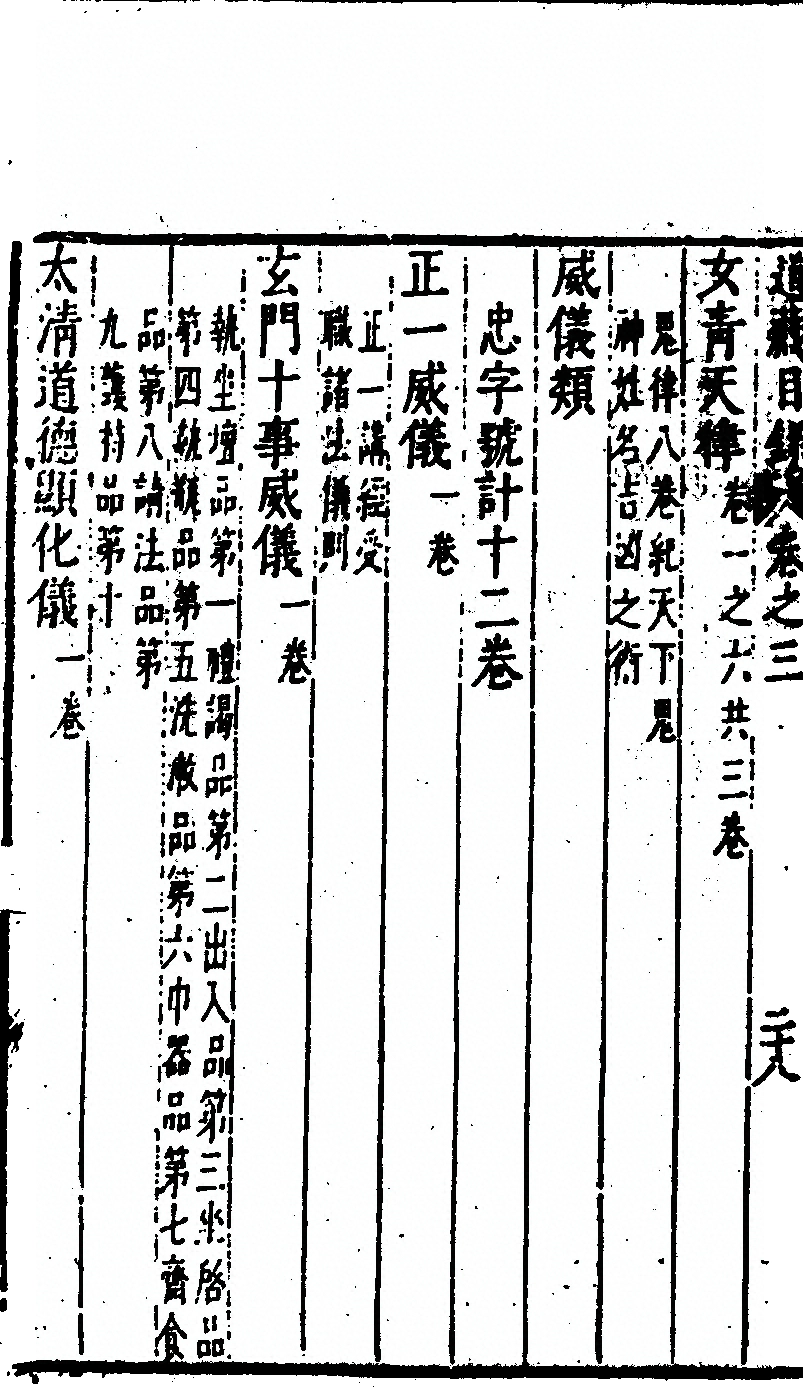 道藏目錄卷之三 二十八
女青天律 卷一之六共三卷
鬼律八卷紀天下鬼
神姓名吉凶之術
威儀類
忠字號計十二卷
正一威儀 一卷
正一講經受
職諸生儀則
玄門十事威儀 一卷
執坐壇品第一禮謁品第二出入品第三坐啓品
第四執飯品第五洗漱品第六巾器品第七齊食
品第八請法品第
九護持品第十
太清道德顯化儀 一卷